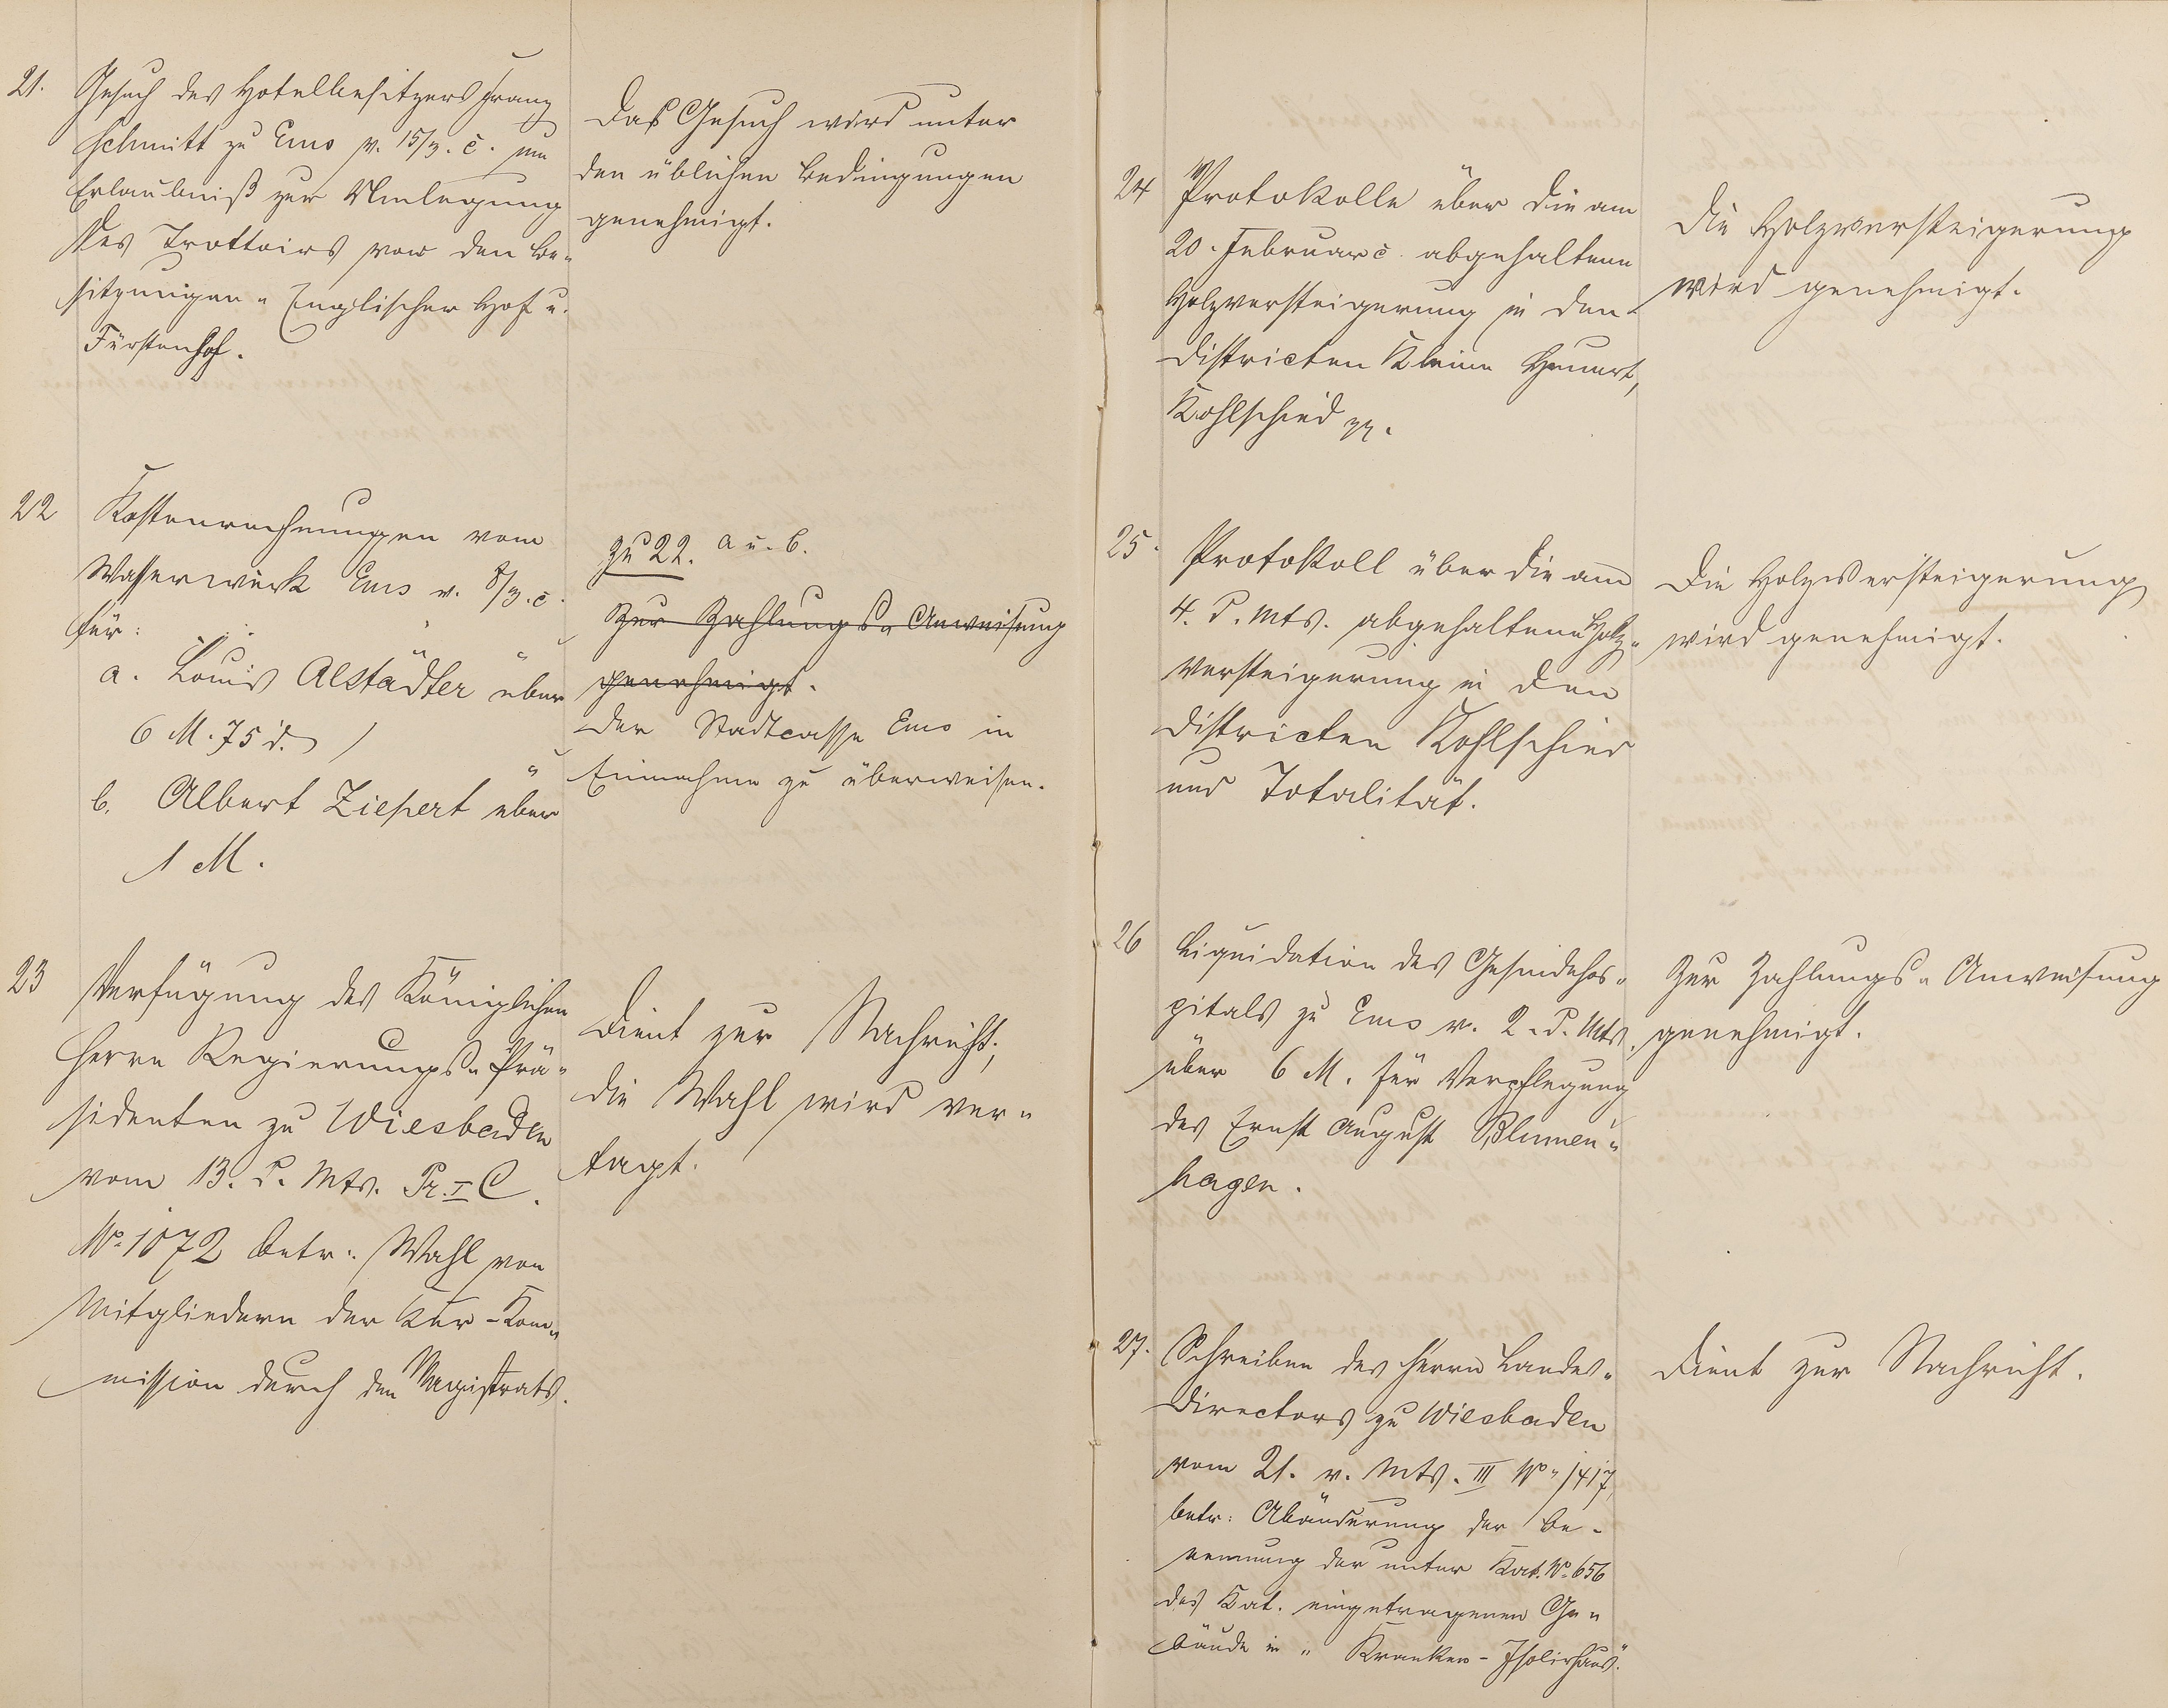 21.
Gesuch des Hotelbesitzers Franz
Schmitt zu Ems v. 15/3. c. um
Erlaubniß zur Umlegung
des Trottoirs vor den Be-
sitzungen „Englischer Hof u.
Fürstenhof.
Das Gesuch wird unter
den üblichen Bedingungen
genehmigt.
22
Kostenrechnungen vom
Wasserwerk Ems v. 8/3. c.
für:
a. Louis Alstädter über
6 M. 75 d.
b. Albert Ziepert über
1 M.
zu 22. a u. b.
Zur Zahlungs-Anweisung
genehmigt.
Der Stadtcasse Ems in
Einnahme zu überweisen.
23
Verfügung des Königlichen
Herrn Regierungs-Prä-
sidenten zu Wiesbaden
vom 13. d. Mts. Pr. I C.
No. 1072 betr: Wahl von
Mitgliedern der Kur-Kom-
mission durch den Magistrats.
Dient zur Nachricht;
die Wahl wird ver-
tagt.
24
Protokolle über die am
20. Februar c. abgehaltene
Holzversteigerung in den
Districten Kleine
Kohlschied pp.
Die Holzversteigerung
wird genehmigt.
25.
Protokoll über die am
4. d. Mts. abgehaltene Holz-
versteigerung in den
Districten Kohlschied
und Totalität.
Die Holzversteigerung
wird genehmigt.
26
Liquidation des Gesindehos-
pitals zu Ems v. 2. d. Mts.
über 6 M. für Verpflegung
des Ernst August Blumen-
hagen.
Zur Zahlungs-Anweisung
genehmigt.
27.
Schreiben des Herrn Landes-
directors zu Wiesbaden
vom 21. v. Mts. III No. 1417,
betr: Abänderung der Be-
nennung der unter Kat. No. 656
des Kat. eingetragenen Ge-
bäude in „Kranken-Isolirhaus“.
Dient zur Nachricht.